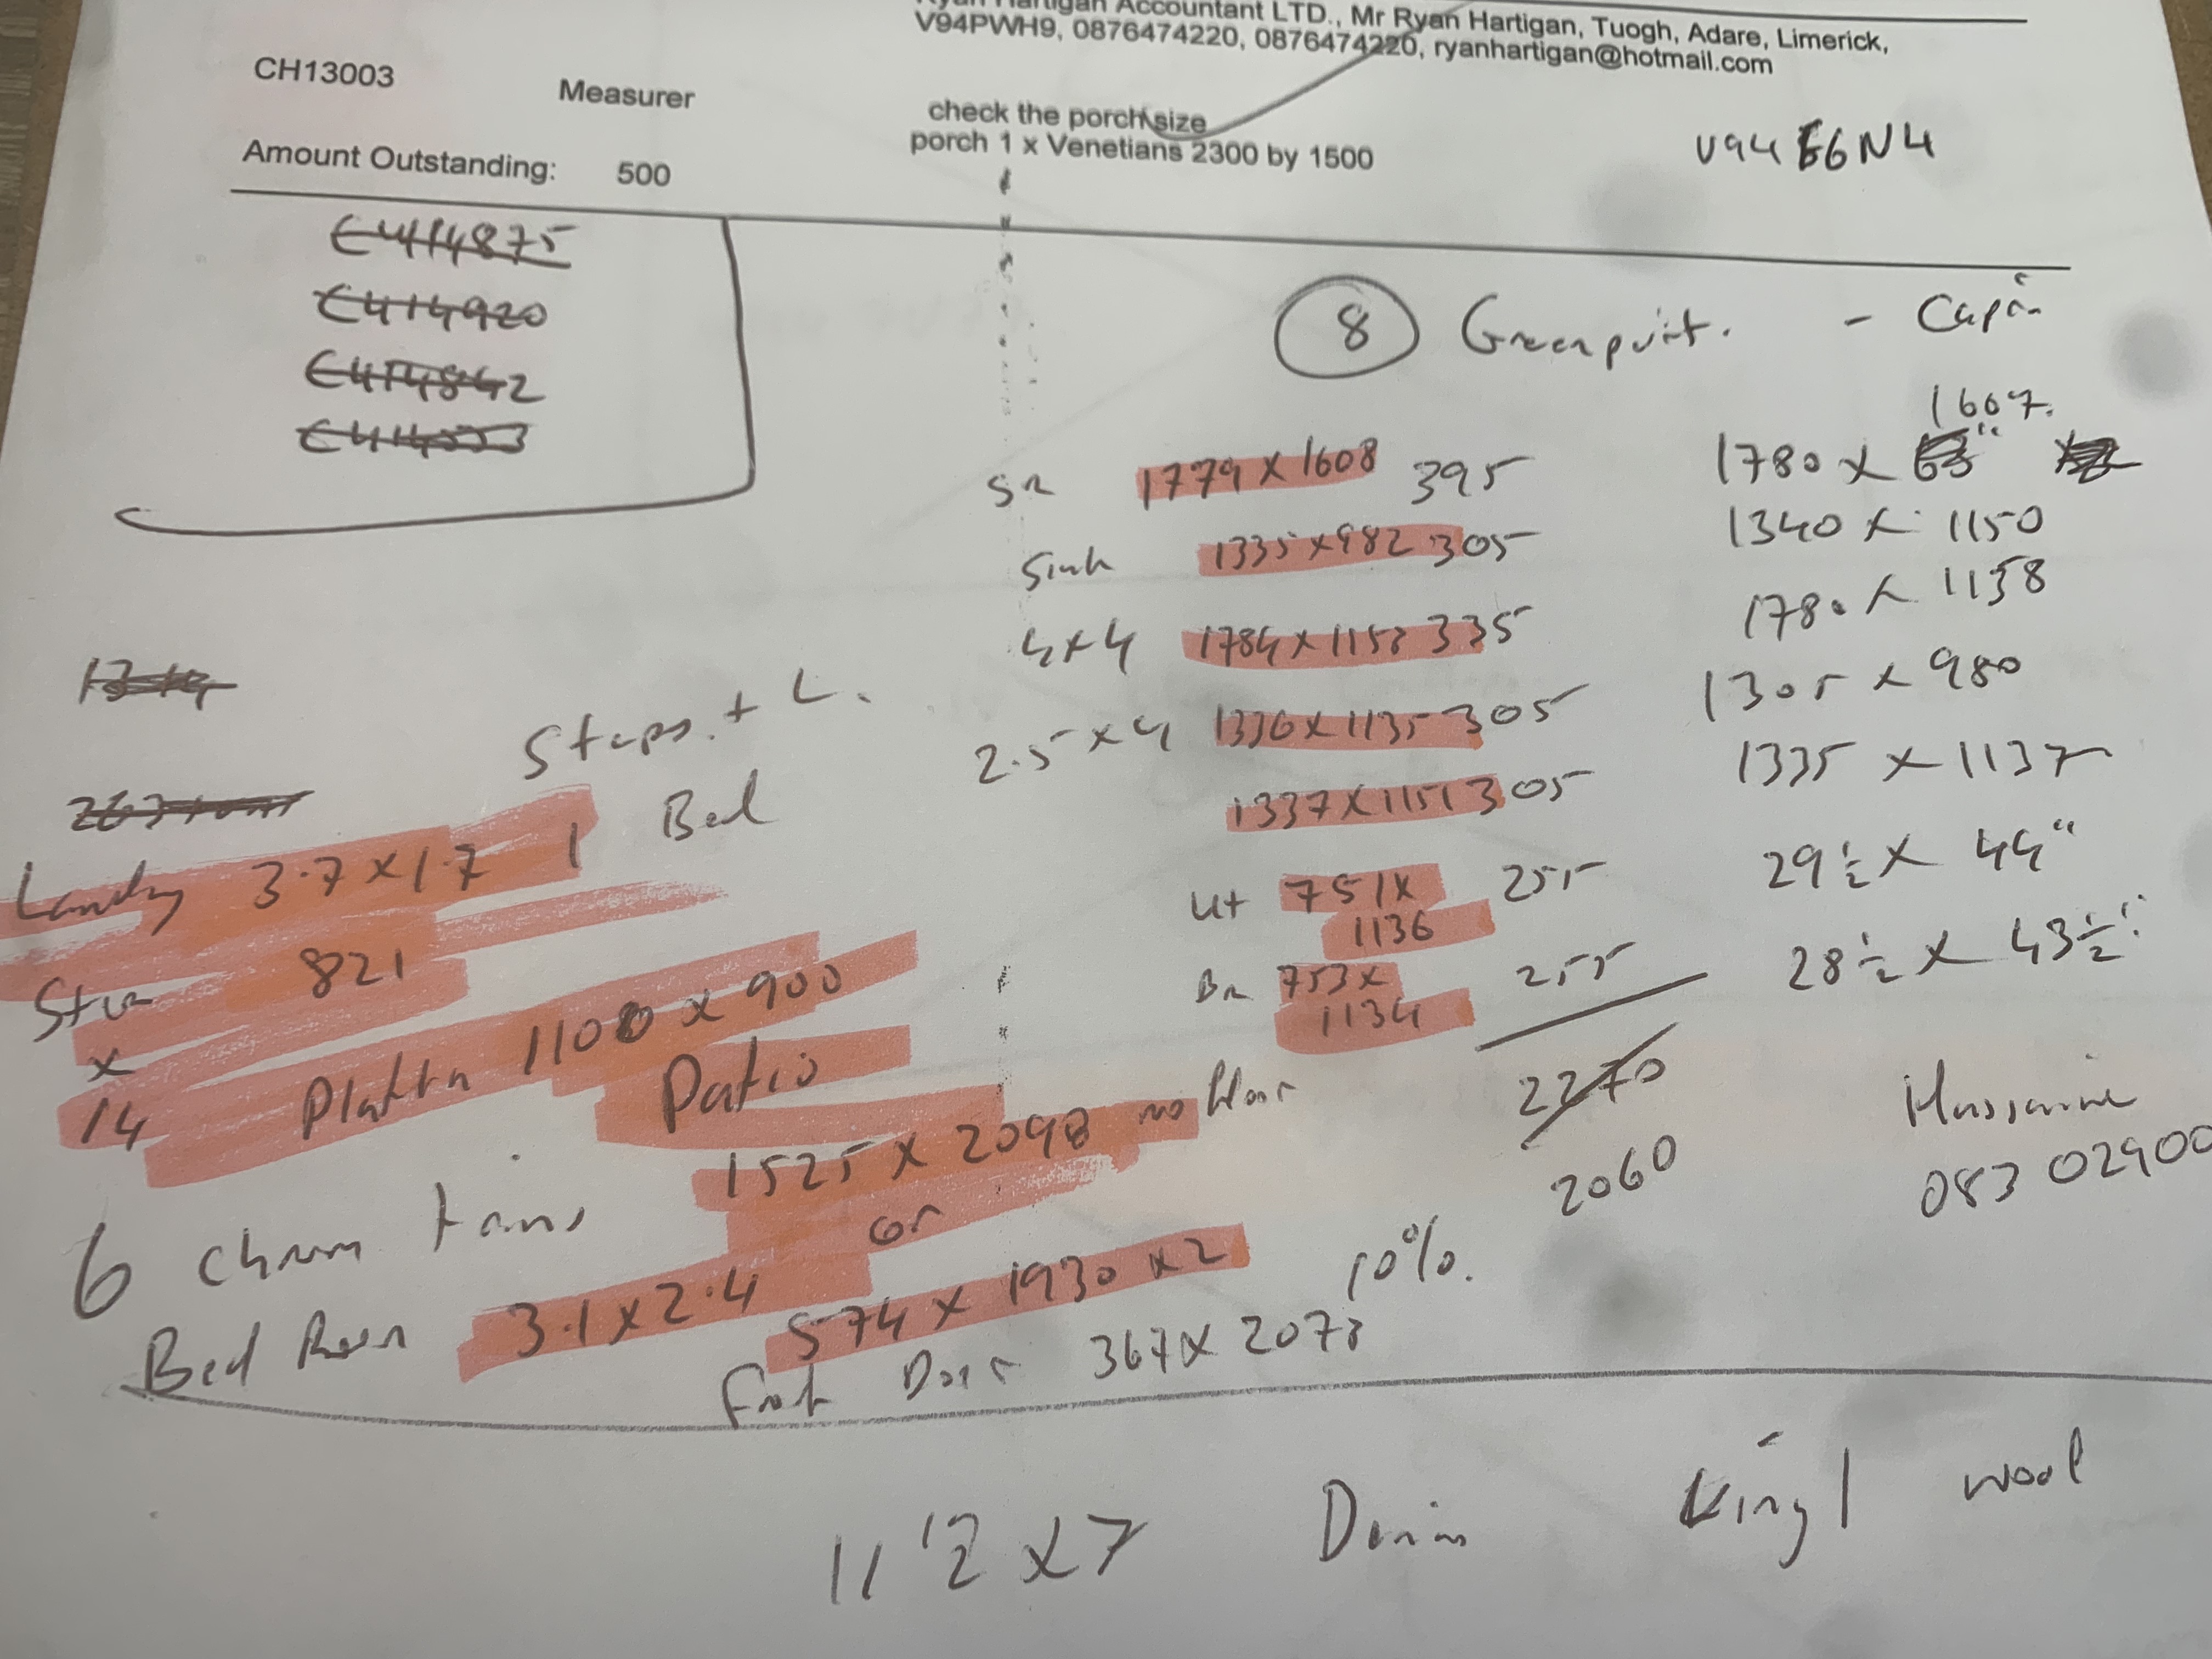 Hartigan Accountant LTD., Mr Ryan Hartigan, Tuogh, Adare, Limerick,
V94PWH9, 0876474220, 0876474220, ryanhartigan@hotmail.com
CH13003 Measurer
check the porch size
porch 1 x Venetians 2300 by 1500
Amount Outstanding: 500
V94 E6N4
€414875
€414920
€414842
8 Greenpoint. -
1607.
SR 1779 x 1608 395 1780 x
Sink 1335 x 982 305 1340 x 1150
4x4 1784 x 1153 335 1780 x 1138
2.5 x 4 1336 x 1135 305 1305 x 980
1337 x 1151 305 1335 x 1137
Ut 751 x 1136 255 29 1/2 x 44"
Br 753 x 1134 255 28 1/2 x 43 1/2"
2270
2060
10%.
083 02900
Steps. + L.
Landing 3.7 x 1.7 1 Bed
821
x
14
1100 x 900
Patio
1525 x 2098 no floor
or
574 x 1930 x 2
6 Chrom
Bed Room 3.1 x 2.4
Door 367 x 2073
11'2 x 7 wool